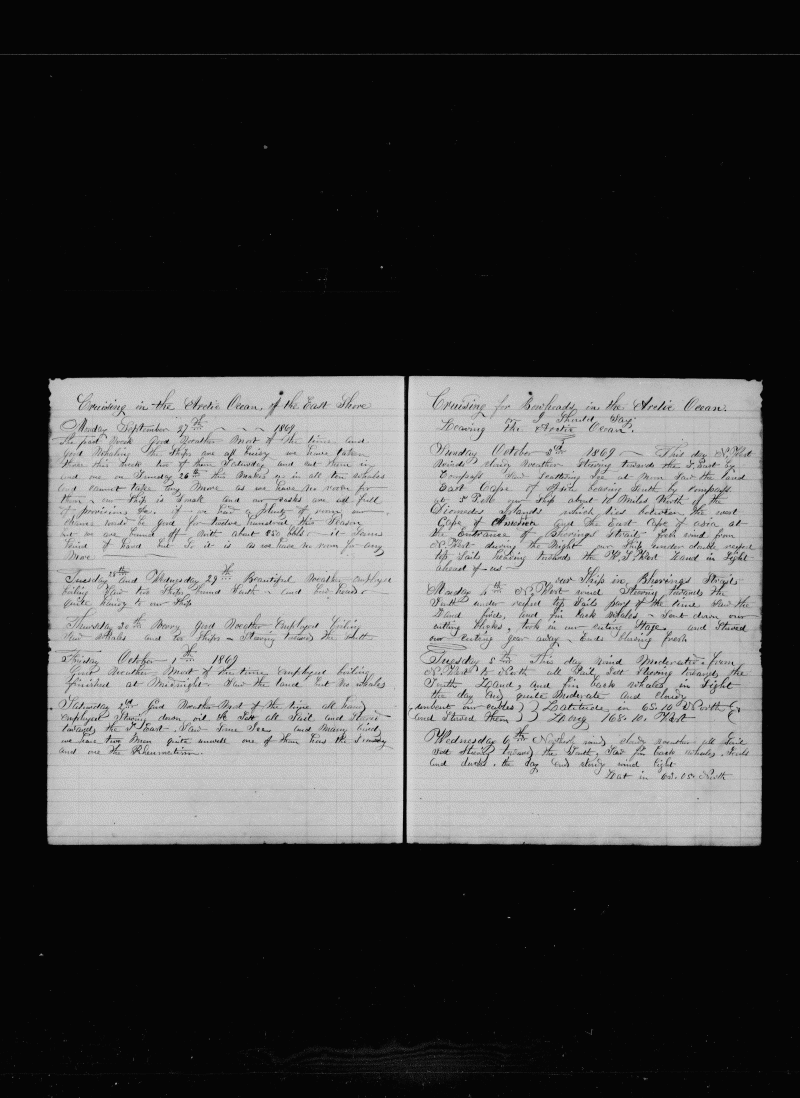 Cruising in the Arctic Ocean, of the East Shore
Monday September 27th 1869
the past Week Good Weather Most of the time and
good Whaling the Ships are all busy we have taken
three this week two of them Saturday and cut them in
and one on Sunday 26th this makes us in all ten whales
and cannot take any More as we have no room for
them our Ship is Small and our casks are all full
of provisions &c. if we had a plenty of room our
chance would be good for twelve hundred this Season
but we are bound off with about 850 bbls it seems
kind of hard but So it is as we have no room for any
More
Tuesday 28th and Wednesday 29th Beautiful Weather employed
boiling Saw two Ships bound South and
quite handy to our Ship
Thursday 30th Good Weather Employed boiling
Saw Whales and two Ships Steering toward the South
Friday October 1st 1869
Good Weather Most of the time employed boiling
finished at Midnight Saw the land but No Whales
Saturday 2nd Good Weather Most of the time all hands
employed Stowing down oil Set all Sail and
towards the S. East Saw Some Ice and Many birds
we have two Men quite unwell one of them has the
and one the Rheumatism
Cruising for Bowheads in the Arctic Ocean.
or I Should Say
Leaving The Arctic Ocean.
Sunday October 3rd 1869 This day N. West
Winds Weather Steering towards the S. East by
Compass Saw Scattering Ice at Noon Saw the land
East Cape of Asia bearing South by compass
at 5 P.M. our Ship about 10 Miles North of the
Diomedes Islands which lies between the west
Cape of America and the East Cape of asia at
the Entrance of Bherings Straits fresh wind from
N. West during the Night our Ship under double reefed
top Sails heading towards the Land in Sight
ahead of us
our Ship in Bherings Straits
Monday 4th N. West wind Steering towards the
South under reefed top Sails part of the time Saw the
Land birds, and fin back whales Sent down our
cutting blocks, took in our cutting Stage and Stowed
our cutting gear away Ends blowing fresh
Tuesday 5th This day wind Moderate from
N. West to North all Sail Set Steering towards the
South Land and fin back whales in Sight
the day ends quite Moderate and cloudy
unbent our cables Latitude in 65.10 North
and Stowed them Long 168.10. West
Wednesday 6th Northerly winds weather all Sail
Set Steering toward the South, Saw fin back whales
and ducks, the day ends wind light
Lat in 63.05. North